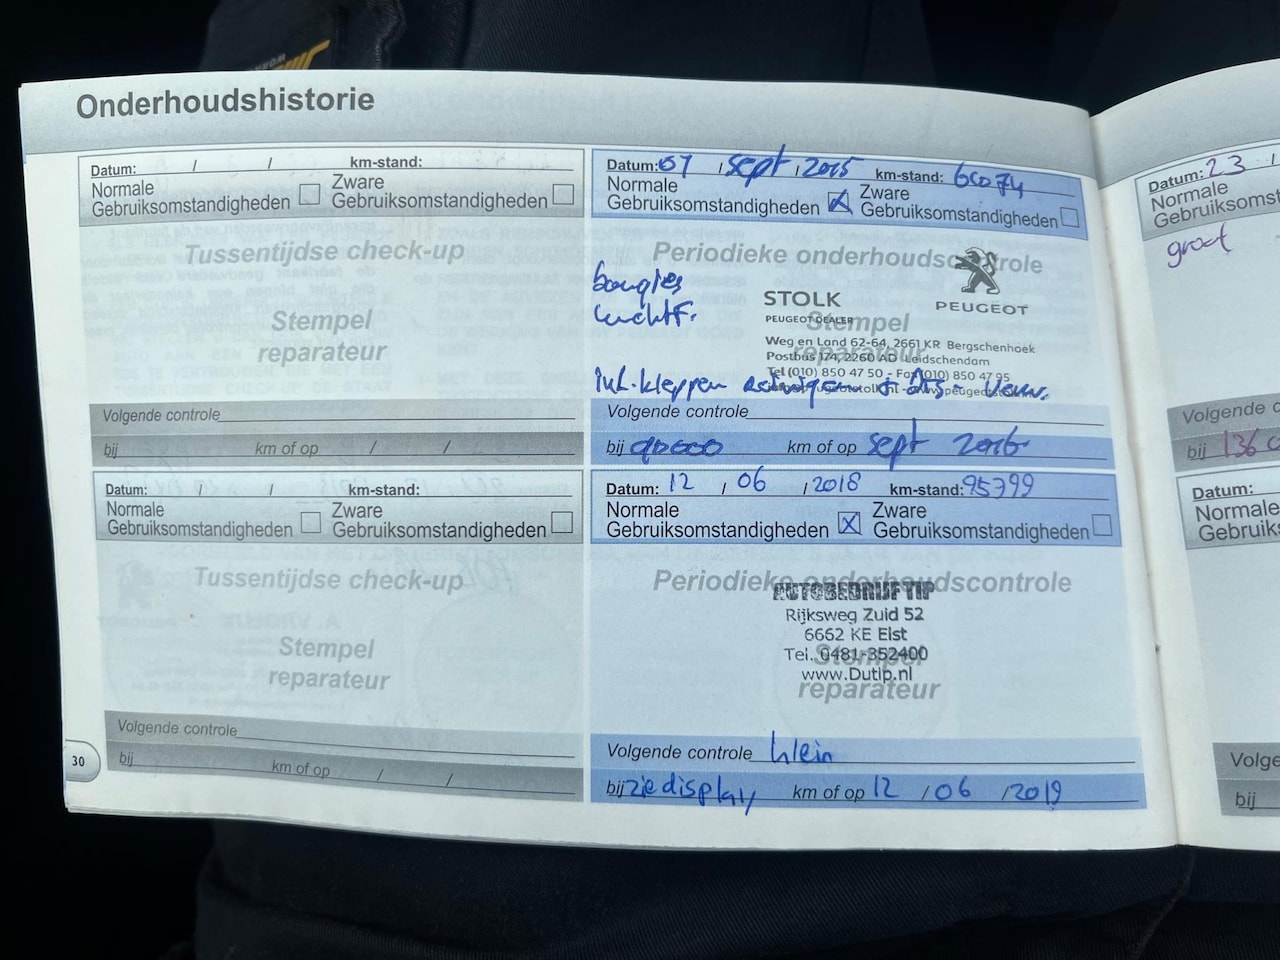 Onderhoudshistorie
Datum: / / km-stand:
Normale Gebruiksomstandigheden
Zware Gebruiksomstandigheden
Tussentijdse check-up
Stempel
reparateur
Volgende controle
bij km of op / /
Datum: / / km-stand:
Normale Gebruiksomstandigheden
Zware Gebruiksomstandigheden
Tussentijdse check-up
Stempel
reparateur
Volgende controle
bij km of op / /
30
Datum: 07 / sept / 2015 km-stand: 60074
Normale Gebruiksomstandigheden X
Zware Gebruiksomstandigheden
Periodieke onderhoudscontrole
bougies
luchtF.
PEUGEOT
STOLK
PEUGEOT DEALER
Stempel
reparateur
Weg en Land 62-64, 2661 KR Bergschenhoek
Postbus 174, 2260 AD Leidschendam
Tel (010) 850 47 50 - Fax (010) 850 47 95
inl. kleppen reinigen +
Volgende controle
bij 90000 km of op sept 2016
Datum: 12 / 06 / 2018 km-stand: 95399
Normale Gebruiksomstandigheden X
Zware Gebruiksomstandigheden
Periodieke onderhoudscontrole
AUTOBEDRIJF TIP
Rijksweg Zuid 52
6662 KE Elst
Tel. 0481-352400
www.Dutip.nl
Stempel
reparateur
Volgende controle klein
bij zie display km of op 12 / 06 / 2019
Datum: 23 /
Normale
Gebruiksomst
groot
Volgende c
bij 136
Datum:
Normale
Gebruiks
Volge
bij